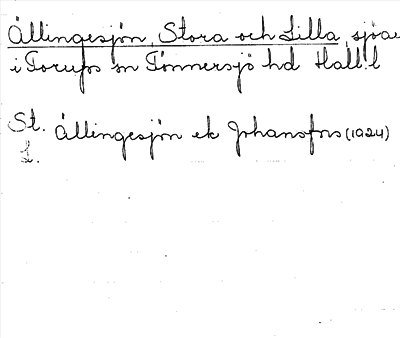 Ällingesjön, Stora och Lilla, sjöar
i Torups sn Tönnersjö hd Hall. l
St. Ällingesjön ek Johansfors (1924)
L.